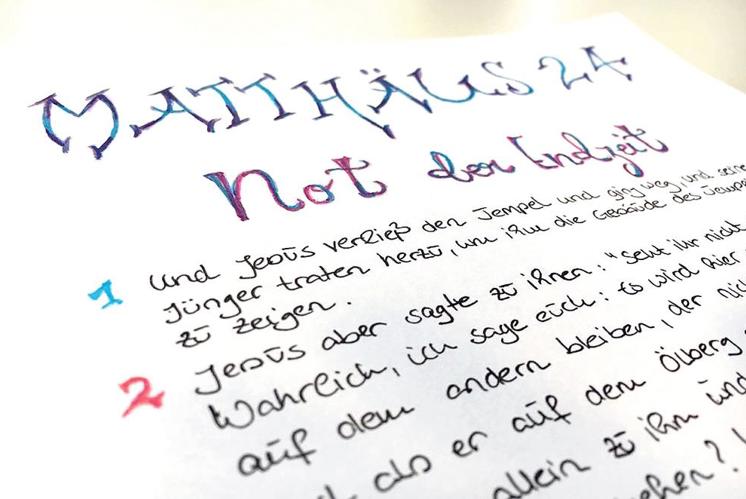 MATTHÄUS 24
Not der Endzeit
1 Und Jesus verließ den Tempel und ging weg, und seine
Jünger traten herzu, um ihm die Gebäude des Tempels
zu zeigen.
2 Jesus aber sagte zu ihnen: "Seht ihr nicht
Wahrlich, ich sage euch: Es wird hier
auf dem andern bleiben, der nic
als er auf dem Ölberg
allein zu ihm und